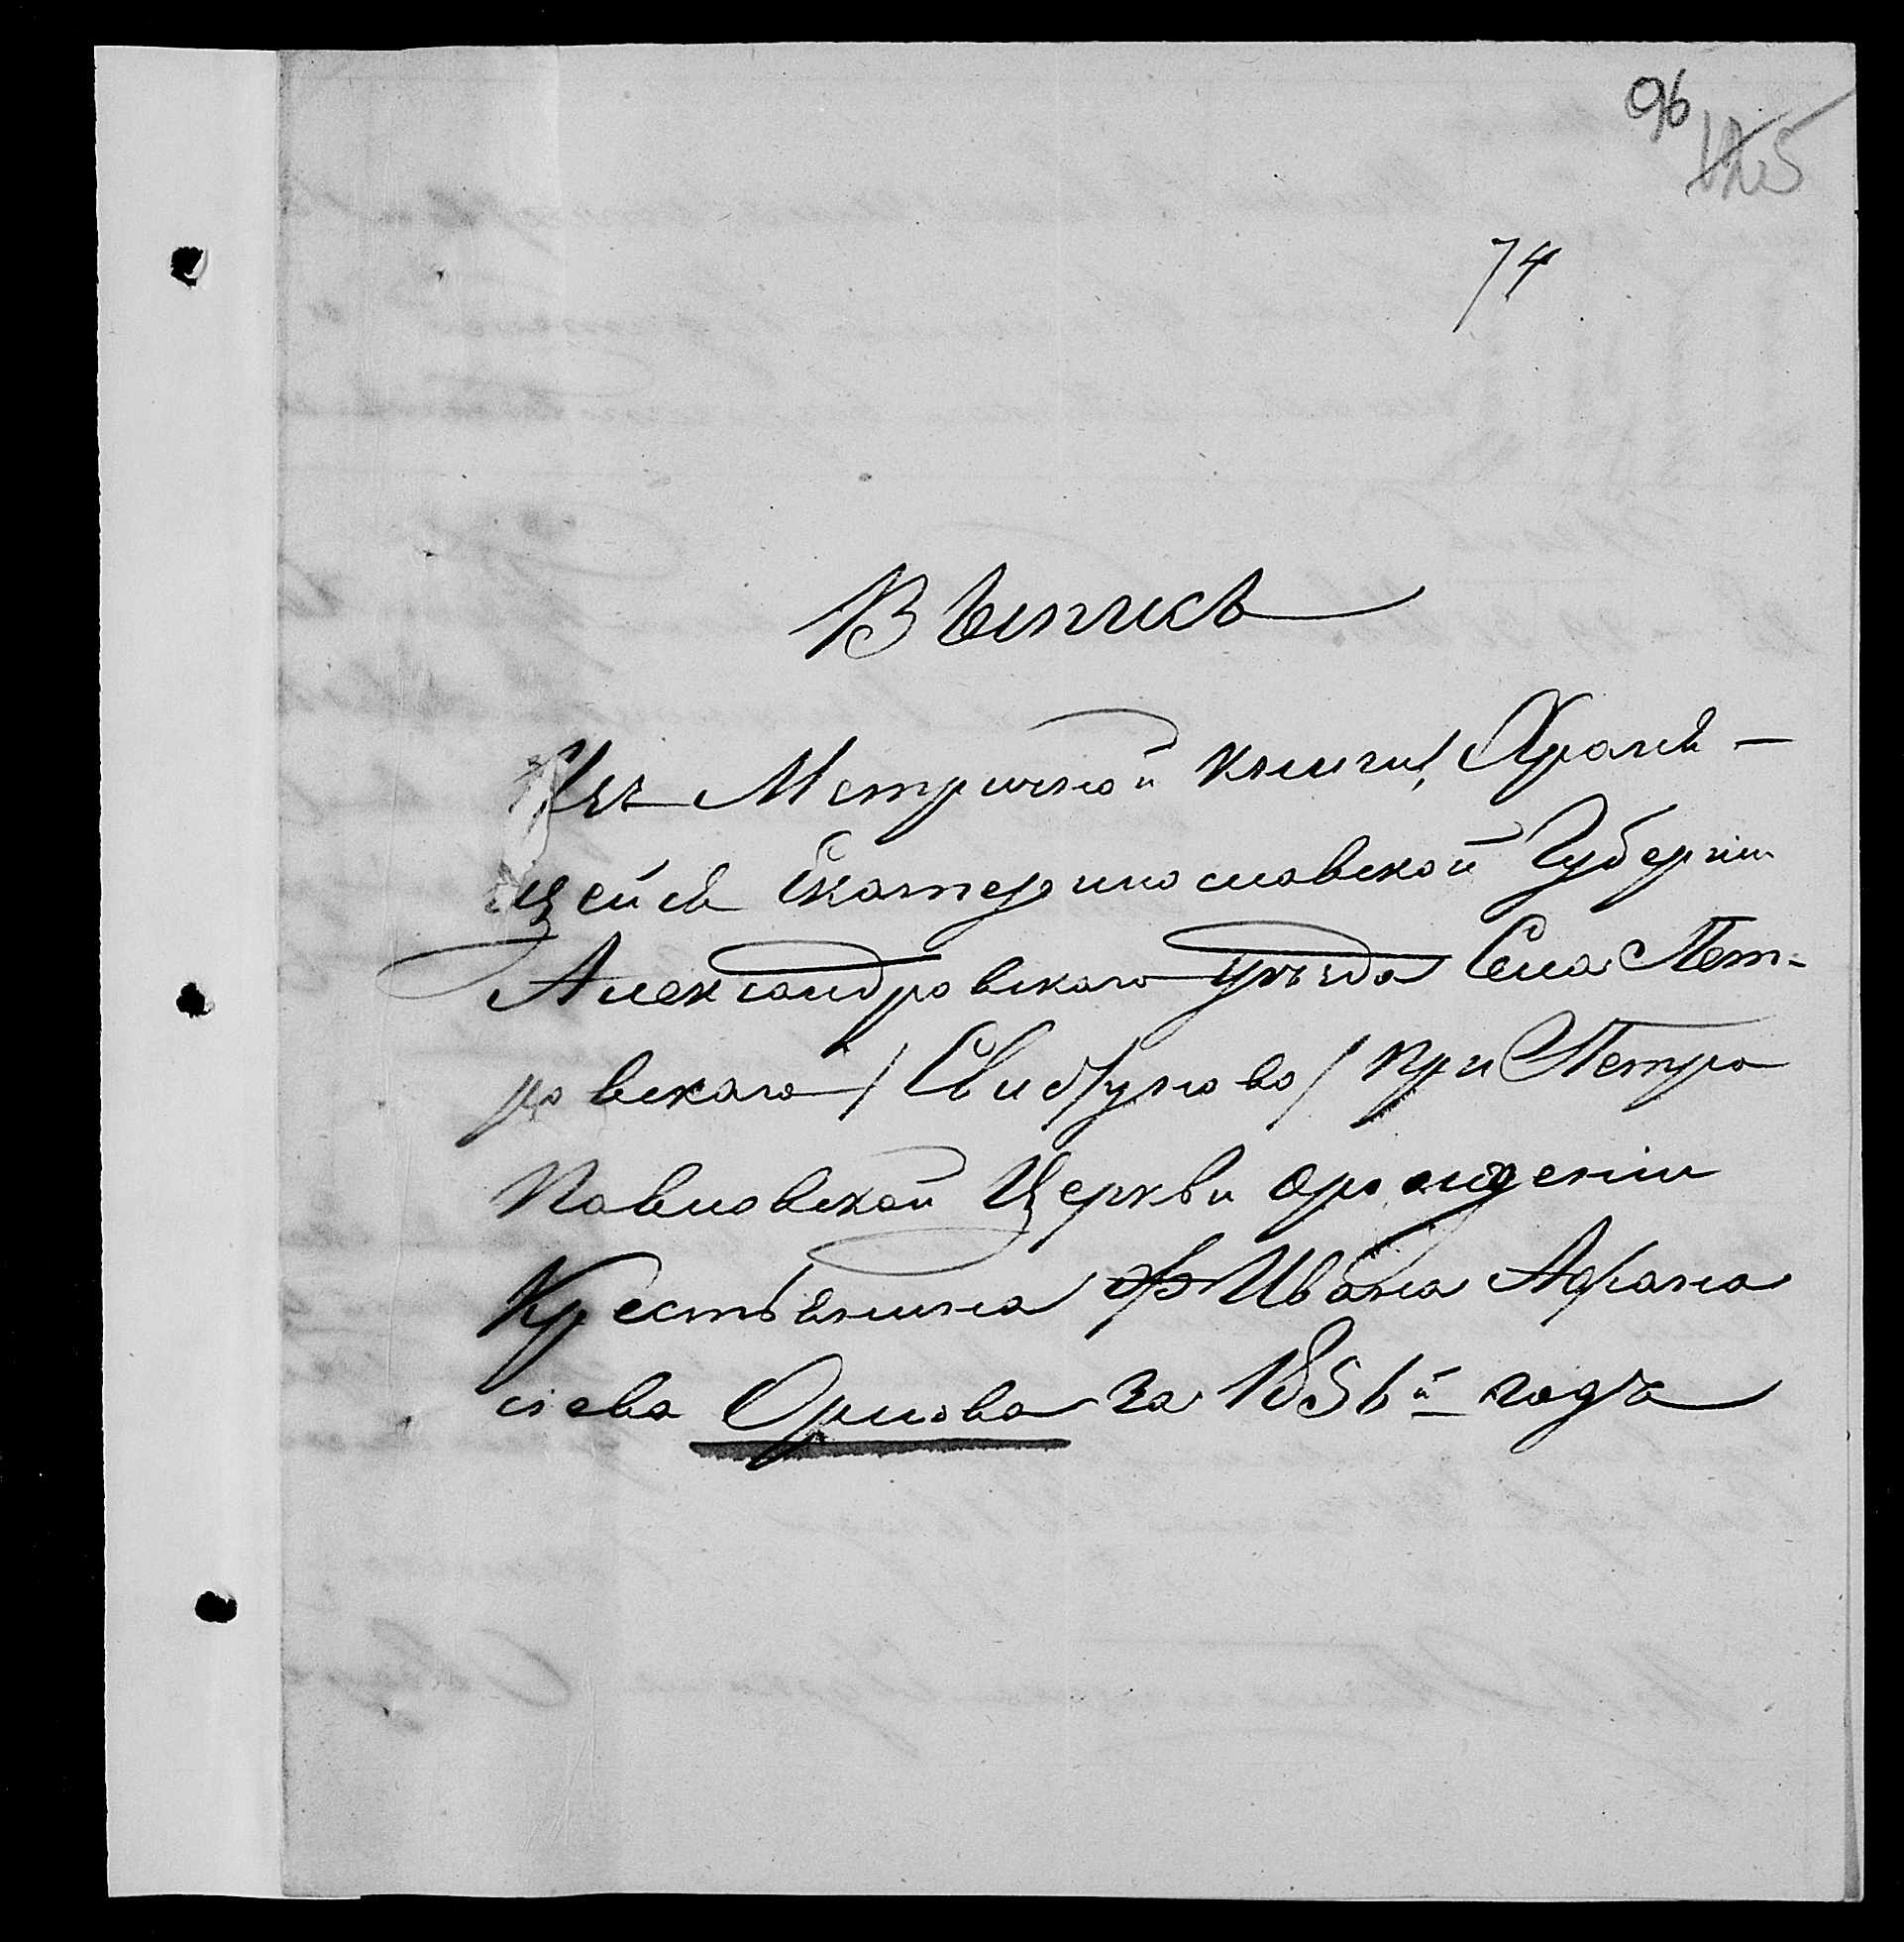 96
125
74
Выпись
Изъ Метричной книги, Храня-
щейся Екатеринославской Губерніи
Александровскаго уѣзда Села Пет-
ровскаго /Свистуново/ при Петро
Павловской Церкви орождении
Крестьянина Ивана Афана
сіева Орлова за 1856й годъ